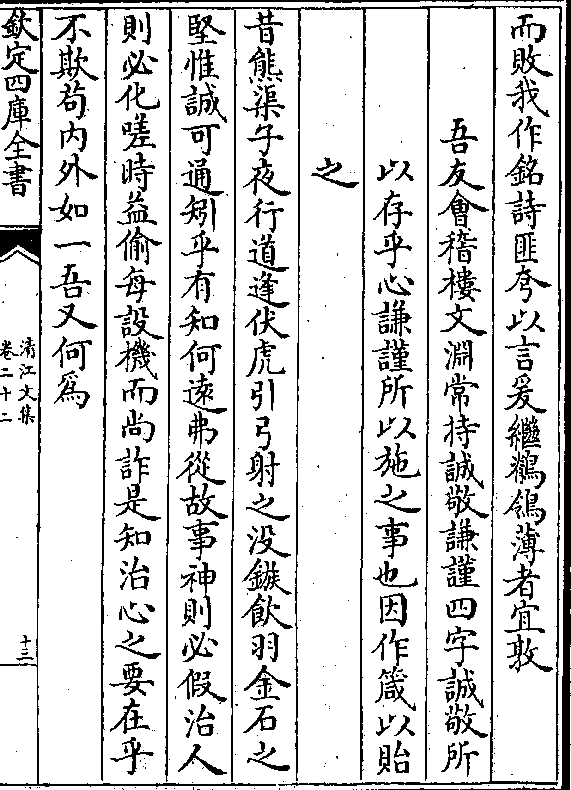 而敗我作銘詩匪夸以言爰繼鶺鴒薄者宜敦
吾友會稽樓文淵常持誠敬謙謹四字誠敬所
以存乎心謙謹所以施之事也因作箴以貽
之
昔熊渠子夜行道逢伏虎引弓射之没鏃飲羽金石之
堅惟誠可通矧乎有知何遠弗從故事神則必假治人
則必化嗟時益偷每設機而尚詐是知治心之要在乎
不欺苟内外如一吾又何爲
欽定四庫全書
清江文集
卷二十二
十三